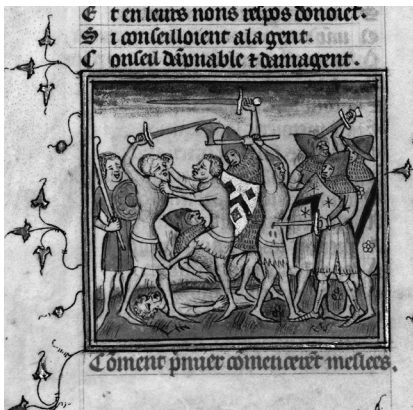 E t en leurs nons respos donoiēt.
S i conseilloient a la gent.
C onseil dāpnable ⁊ damagent.
Cōment p̄mier cōmencerēt meslees.